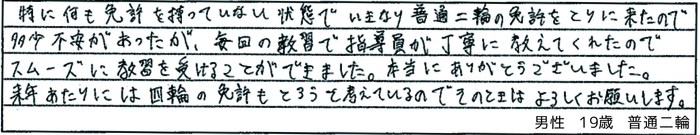 特に何も免許を持っていない状態でいきなり普通二輪の免許をとりに来たので
多少不安があったが、毎回の教習で指導員が丁寧に教えてくれたので
スムーズに教習を受けることができました。本当にありがとうございました。
来年あたりには四輪の免許もとろうと考えているのでそのときはよろしくお願いします。
男性　19歳　普通二輪